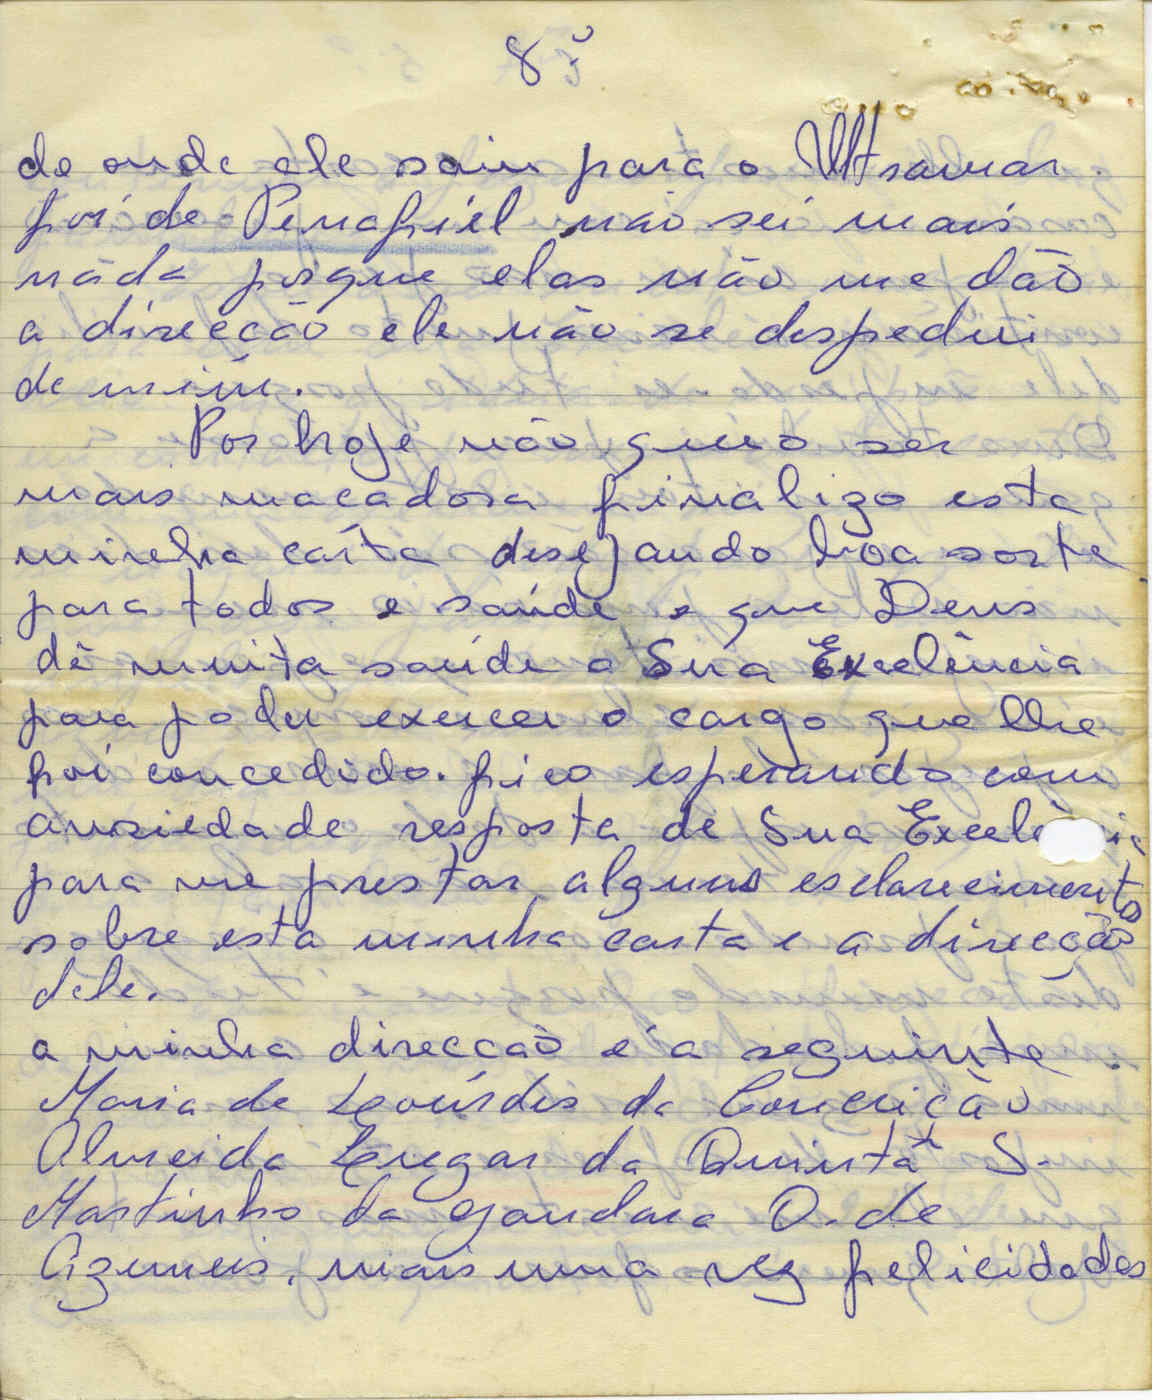 8.º
de onde ele saiu para o Ultramar.
foi de Penafiel não sei mais
náda porque elas não me dão
a direcção ele não se despediu
de mim.
Por hoje não quero ser
mais maçadora finalizo esta
minha carta desejando boa sorte
para todos e saúde e que Deus
dê muita saúde a Sua Excelência
para poder exercer o cargo que lhe
foi concedido. fico esperando com
anciedade resposta de Sua Excelência
para me prestar alguns esclarecimentos
sobre esta minha carta e a direcção
dele.
a minha direcção é a seguinte
Maria de Lourdes da Conceição
Almeida Lugar da Quintã S.
Martinho da gandara O. de
Azemeis. mais uma vez felicidades